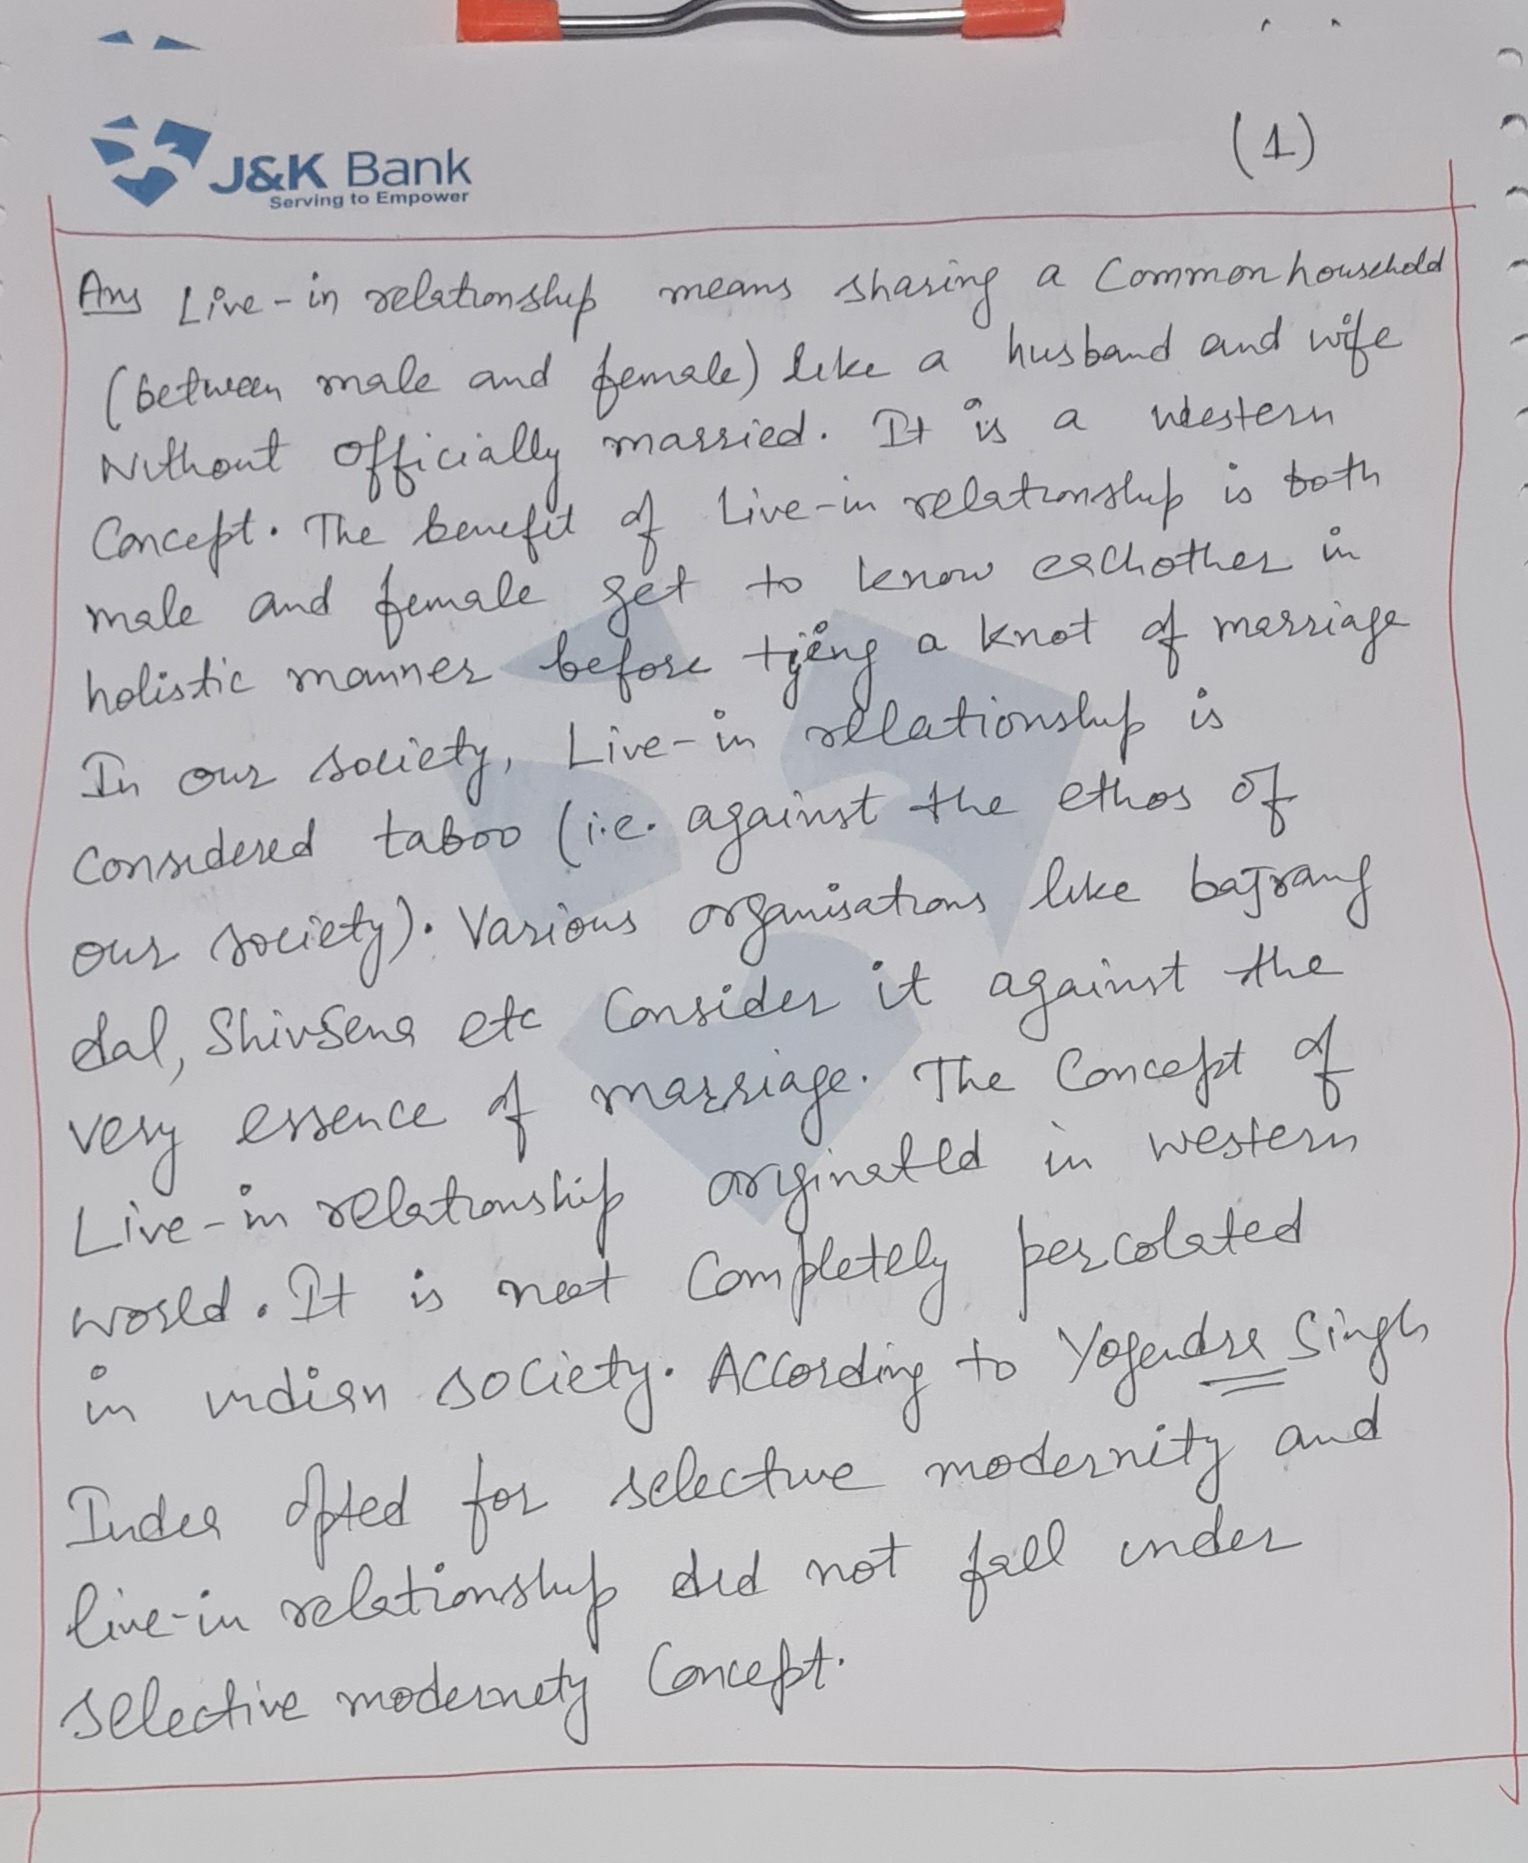 J&K Bank
Serving to Empower
(1)
Ans Live-in relationship means sharing a Common household
(between male and female) like a husband and wife
Without officially married. It is a western
Concept. The benefit of Live-in relationship is both
male and female get to know eachother in
holistic manner before tying a knot of marriage
In our society, Live-in relationship is
Considered taboo (i.e. against the ethos of
our society). Various organisations like bajrang
dal, Shivsena etc Consider it against the
very essence of marriage. The Concept of
Live-in relationship originated in western
world. It is not Completely percolated
in indian society. According to Yogendra Singh
India opted for selective modernity and
live-in relationship did not fall under
selective modernety Concept.